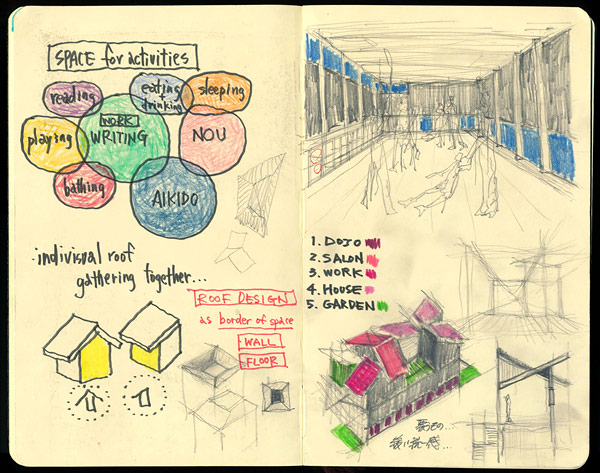 SPACE for activities
reading
eating
drinking
sleeping
playing
WORK
WRITING
NOU
bathing
AIKIDO
indivisual roof
gathering together...
ROOF DESIGN
as border of space
WALL
FLOOR
1. DOJO
2. SALON
3. WORK
4. HOUSE
5. GARDEN